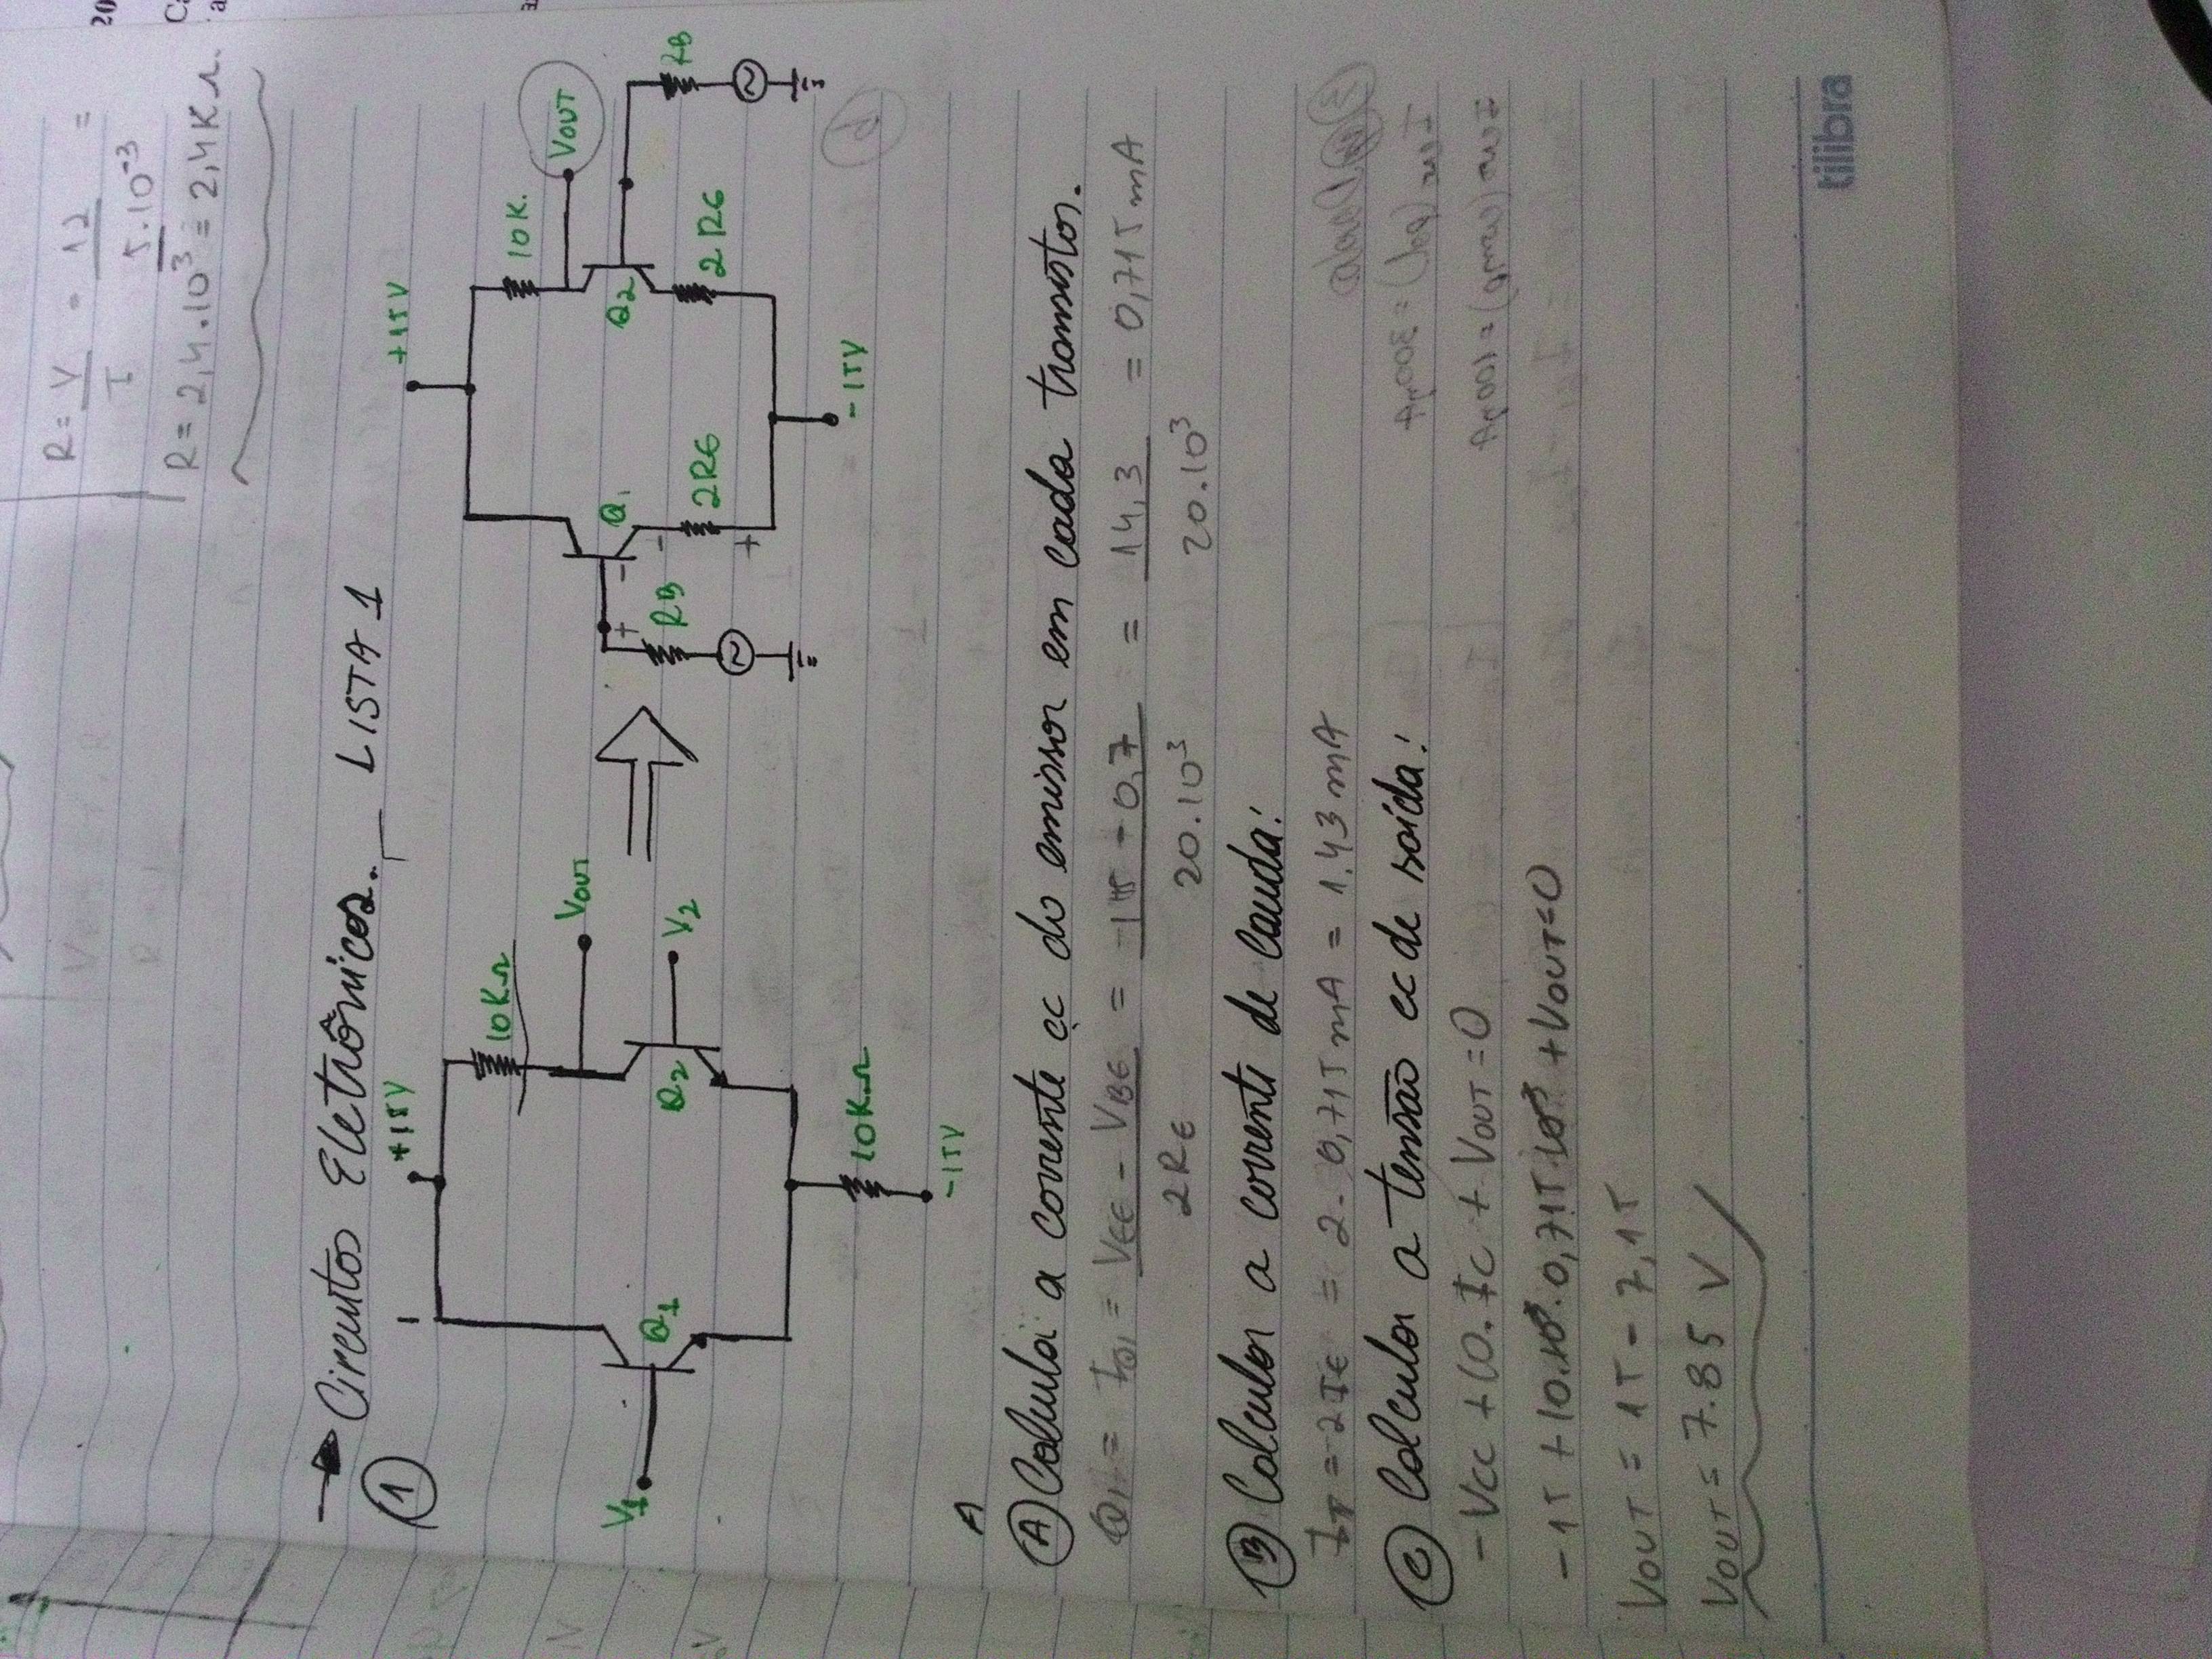 R = V = 12 =
I 5.10-3
R = 2,4.10³ = 2,4KΩ.
→ Circuitos Eletrônicos. _ LISTA 1
1
+15V
10KΩ
Vout
V2
Q2
Q1
V1
10KΩ
-15V
+15V
10K.
VOUT
Q1
Q2
RB
RB
2RE
2RE
-15V
A
A Calcula a corrente cc do emissor em cada transistor.
= VEE - VBE = -15 - 0,7 = 14,3 = 0,715 mA
2RE 20.10-3 20.10³
B Calcular a corrente de cauda!
IT = 2IE = 2. 0,715 mA = 1,43 mA
C Calcular a tensão cc de saída!
- Vcc + 10.Ic + VOUT = 0
- 15 + 10.10³.0,715.10-3 + VOUT = 0
VOUT = 15 - 7,15
VOUT = 7.85 V
tilibra